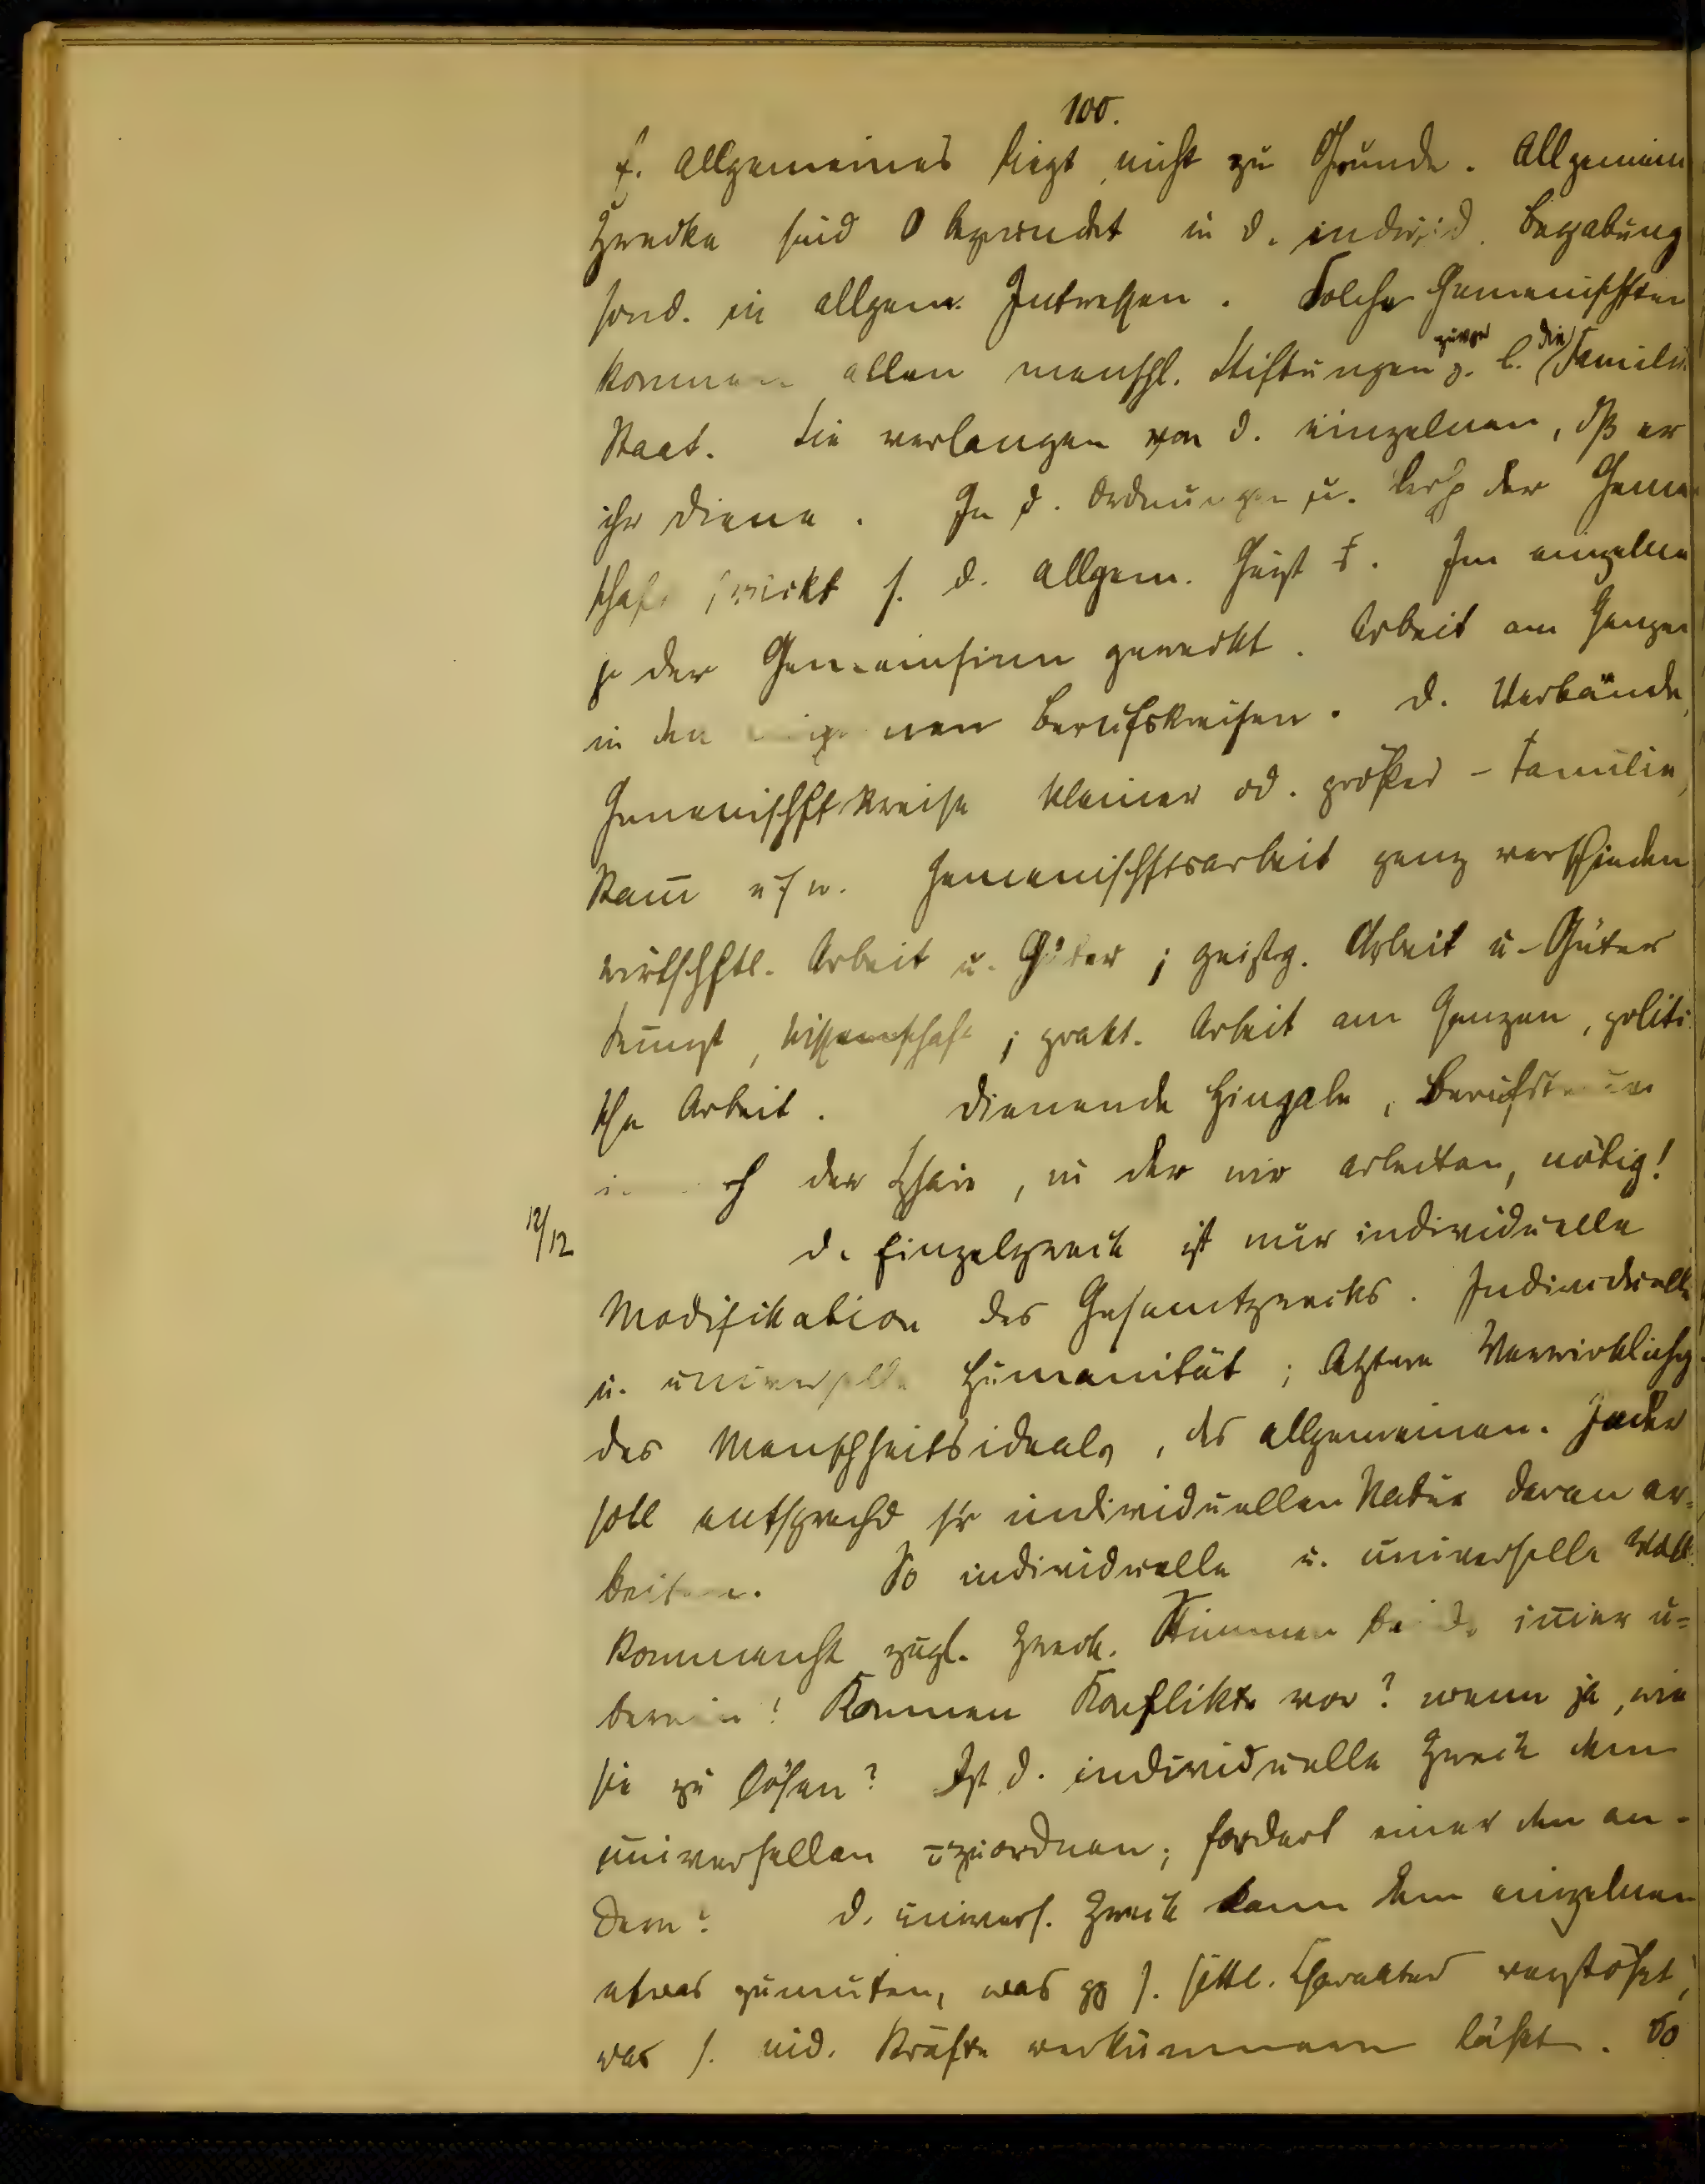 100.
f. Allgemeines liegt nicht zu Grunde. Allgemein
Zwecke sind 0 begründet in d. individ. Begabung
sond. in allgem. Intressen. Solche Gemeinschften
kommen allen menschl. Stiftungen zuvor z. b. (die Familie
Staat. Sie verlangen von d. einzelnen, dß er
ihr diene. In d. Ordnungen u. der Geme
schaft wirkt s. d. allgem. Geist. Im einzelne
der Gemeinsinn geweckt. Arbeit am Ganzen
in den Berufskreisen. D. Verbände,
Gemeinschftkreise kleiner od. größer - Familie,
Stam̄ usw. Gemeinschftsarbeit ganz verschieden
wirtschftl. Arbeit u. Güter; geistg. Arbeit u. Güter
Kunst, Wissenschaft; prakt. Arbeit am Ganzen, politi
sche Arbeit. Dienende Hingabe,
der, in der wir arbeiten, nötig!
12/12 D. Einzelzweck ist nur individuelle
Modifikation des Gesamtzwecks. Individuelle
u. universelle Humanität; letztere Verwirklichg
des Menschheitsideals, des allgemeinen. Jeder
soll entsprechd sr individuellen Natur daran ar-
beiten. So individuelle u. universelle Voll
kommenht zugl. Zweck. Stimmen beide im̄er ü-
berein? Kommen Konflikte vor? wenn ja, wie
sie zu lösen? Ist d. individuelle Zweck dem
universellen zuordnen; fordert einer den an-
dern? D. univers. Zweck kann dem einzelnen
etwas zumuten, was gg s. sittl. Charakter verstößt,
was s. ind. Kräfte verkümmern läßt. So